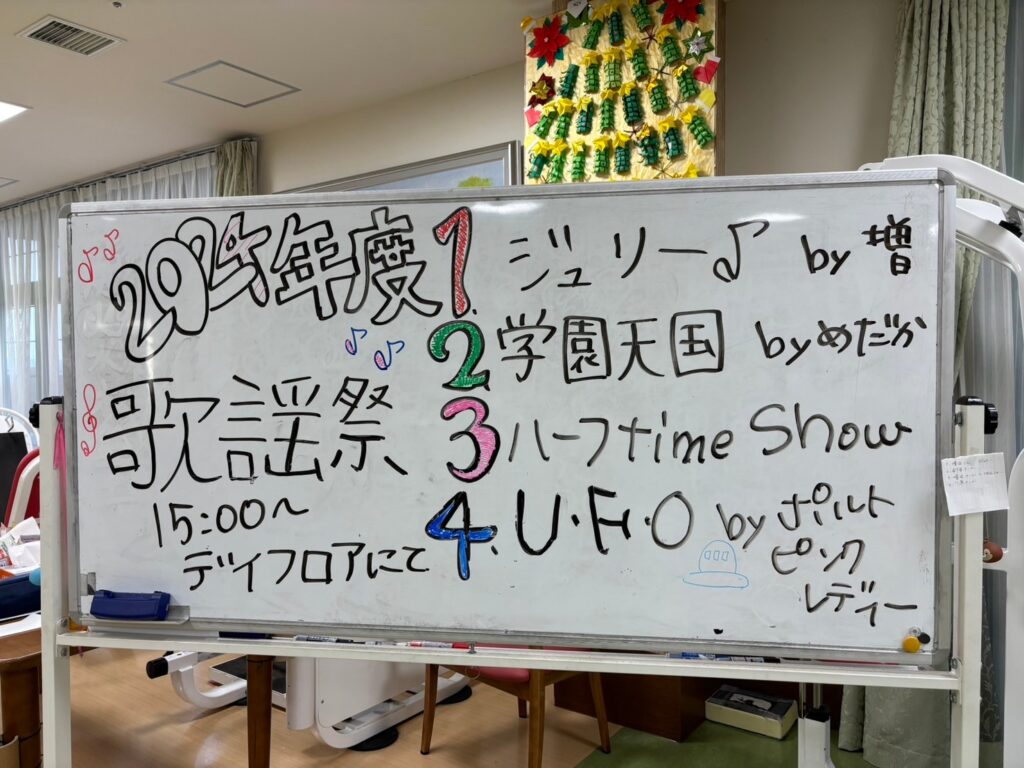 2024年度
歌謡祭
15:00～
デイフロアにて
1. ジュリー♪ by 増
2. 学園天国 by めだか
3 ハーフtime Show
4. U・F・O by ポルト
ピンク
レディー